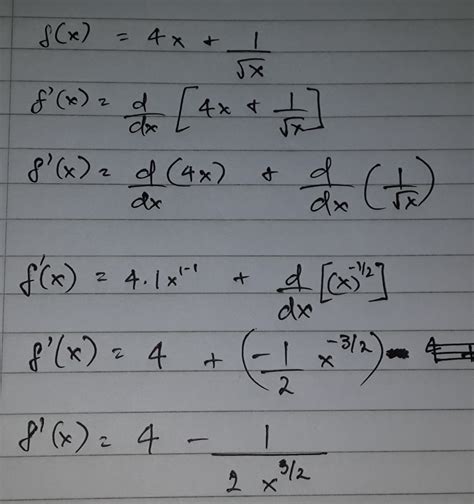 f(x) = 4x + 1/√x
f'(x) = d/dx [4x + 1/√x]
f'(x) = d/dx (4x) + d/dx (1/√x)
f'(x) = 4.1x^(1-1) + d/dx [(x)^(-1/2)]
f'(x) = 4 + (-1/2 x^(-3/2))
f'(x) = 4 - 1/(2 x^(3/2))